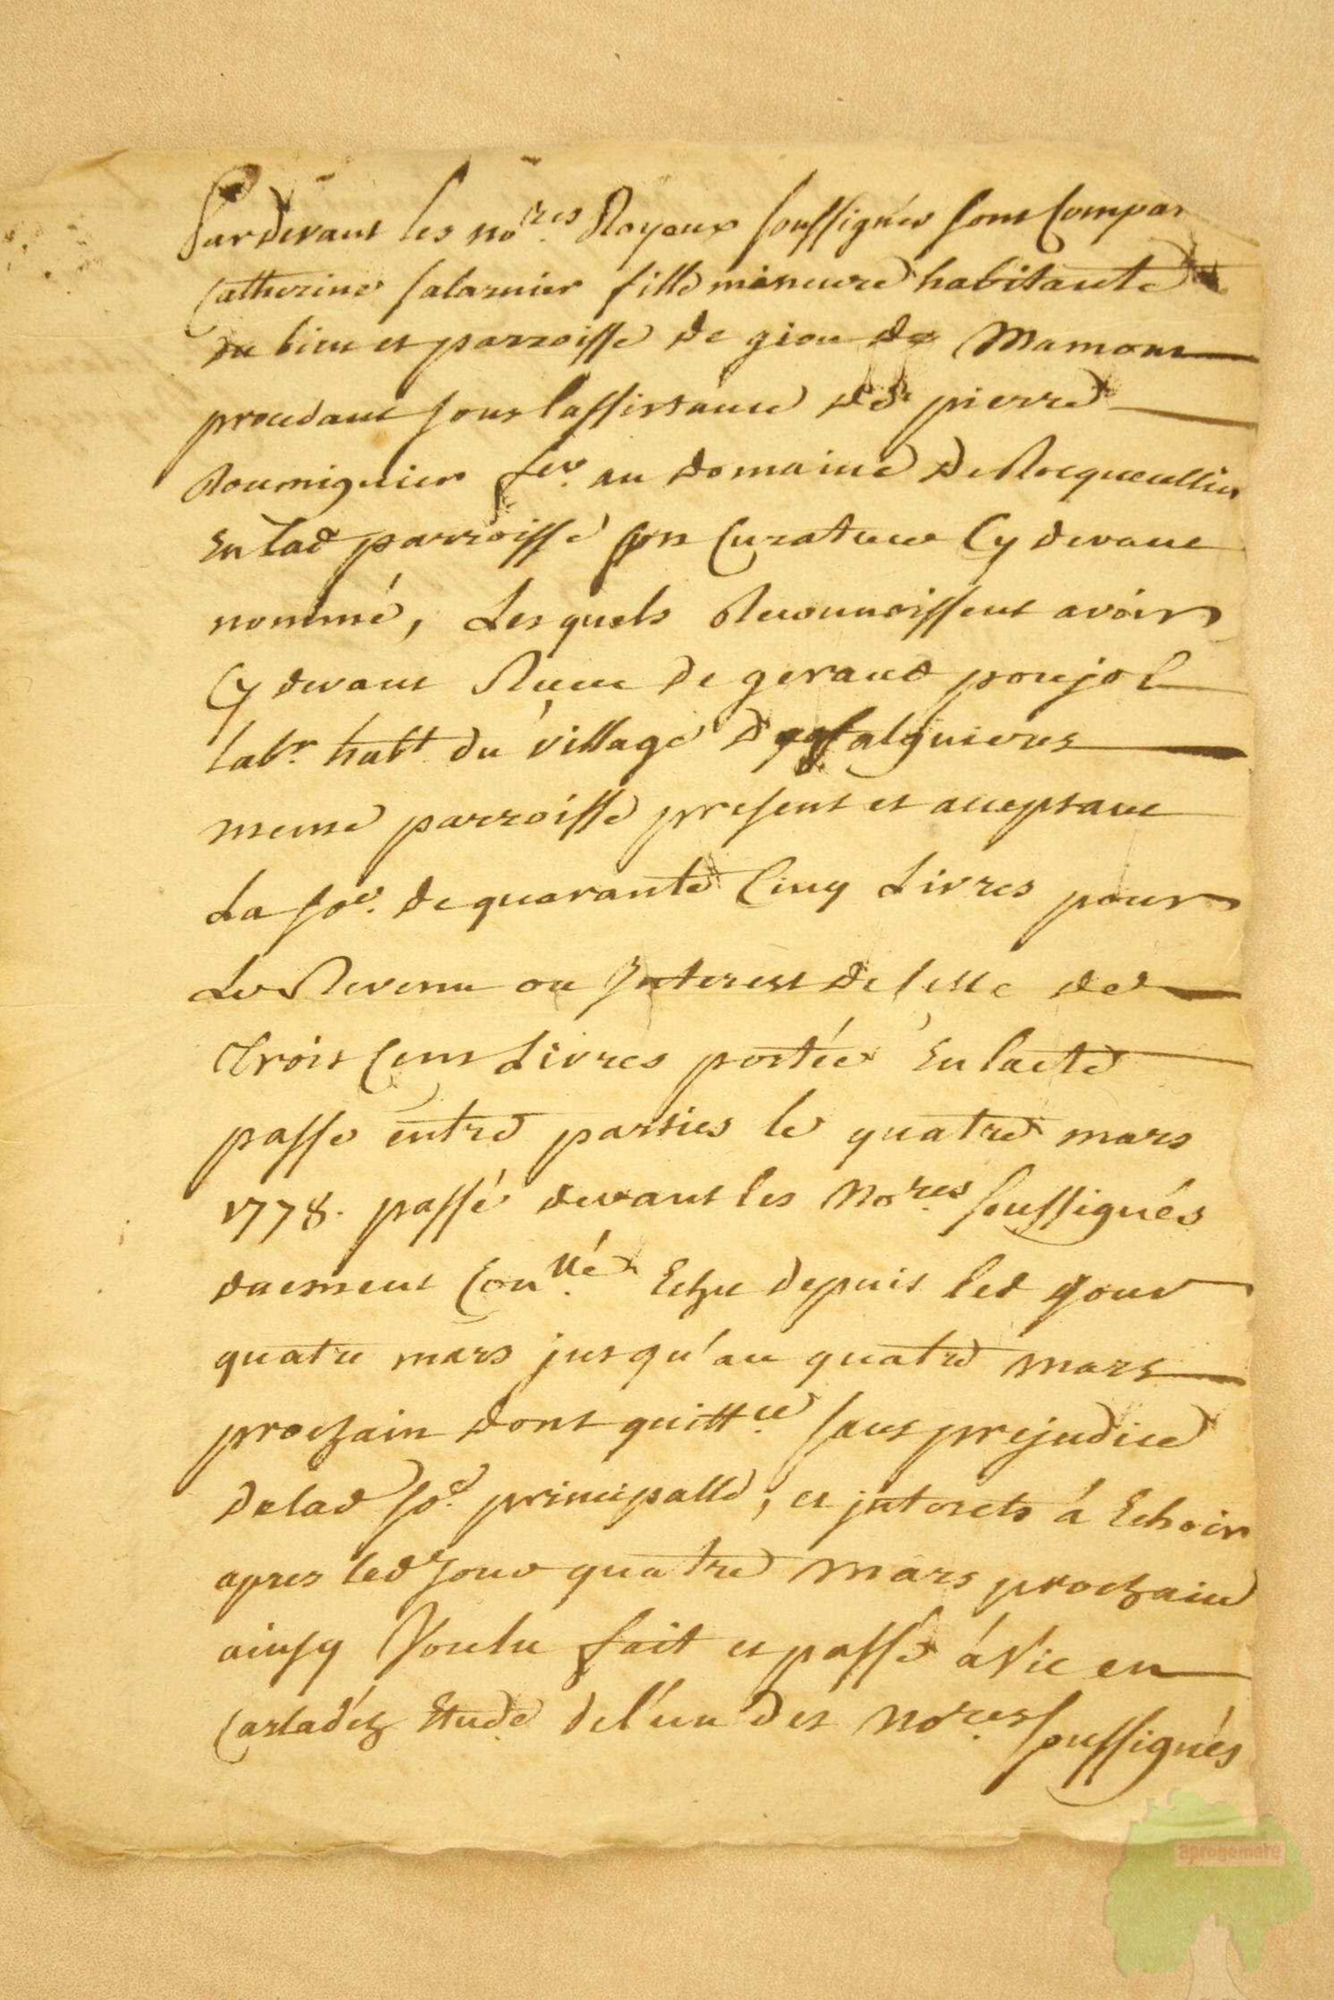 Pardevant les no.res Royaux soussignés sont Compar
Catherine salarnier fille mineure habitante
du lieu et parroisse de giou de Mamou
procedant sous lassistance de pierre
Roumiguier fer. au domaine De Rocqueullier
En lad parroisse son Curateur Cy devant
nommé, Lesquels Reconnoissent avoir
Cy devant Receu De geraud poujol
labr. habt. du village falguieres
meme parroisse present et acceptant
La soe. De quarante Cinq Livres pour
Le Revenu ou Interest de celle de
Trois Cens Livres portée En lacte
passe entre parties le quatre mars
1778. passé devant les No.res soussignés
duement Con.llé Echu depuis led jour
quatre mars jusqu'au quatre mars
prochain dont quitt.ce sans prejudice
De lad soe. principalle, et interets à Echoir
apres led jour quatre mars prochain
ainsy Voulu fait et passé à Vic en
Carladéz Etude de l'un Des No.res soussignés
aprogemere